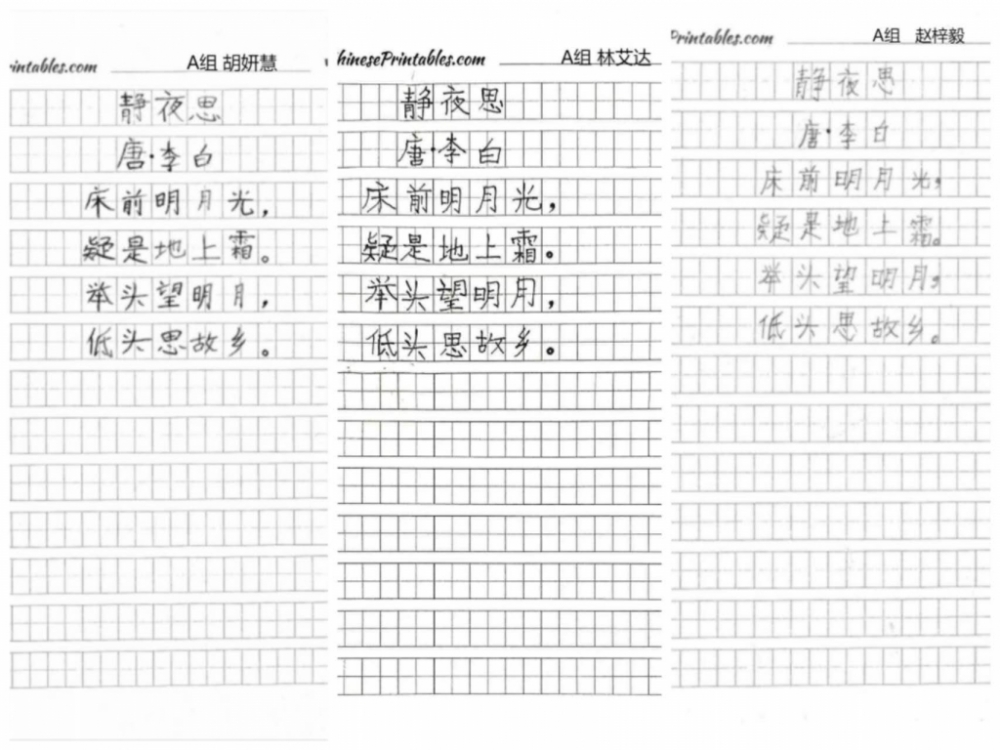 intables.com A组 胡妍慧
静夜思
唐·李白
床前明月光，
疑是地上霜。
举头望明月，
低头思故乡。
hinesePrintables.com A组 林艾达
静夜思
唐·李白
床前明月光，
疑是地上霜。
举头望明月，
低头思故乡。
Printables.com A组 赵梓毅
静夜思
唐·李白
床前明月光，
疑是地上霜。
举头望明月，
低头思故乡。